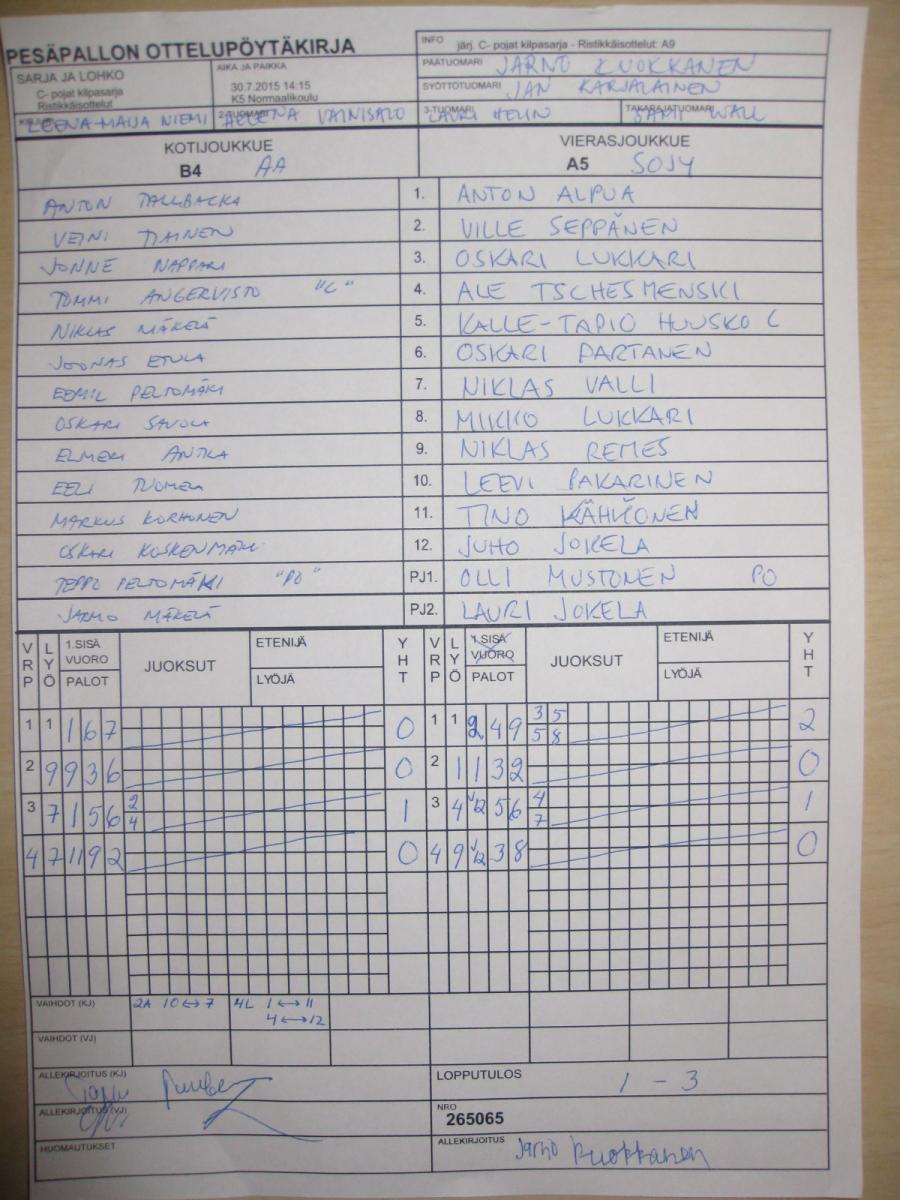 PESÄPALLON OTTELUPÖYTÄKIRJA
INFO järj. C- pojat kilpasarja - Ristikkäisottelut: A9
SARJA JA LOHKO
C- pojat kilpasarja
Ristikkäisottelut
AIKA JA PAIKKA
30.7.2015 14:15
K5 Normaalikoulu
PÄÄTUOMARI JARNO KUOKKANEN
SYÖTTÖTUOMARI JAN KARJALAINEN
KIRJURI LEENA-MAIJA NIEMI
2-TUOMARI HELENA VAINISALO
3-TUOMARI LAURI HELIN
TAKARAJATUOMARI SAMI WALL
KOTIJOUKKUE
B4 AA
VIERASJOUKKUE
A5 SOJY
ANTON TALLBACKA 1. ANTON ALPUA
VEINI TIAINEN 2. VILLE SEPPÄNEN
JONNE NAPPARI 3. OSKARI LUKKARI
TOMMI ANGERVISTO "C" 4. ALE TSCHESMENSKI
NIKLAS MÄKELÄ 5. KALLE-TAPIO HUUSKO C
JOONAS ETULA 6. OSKARI PARTANEN
EEMIL PELTOMÄKI 7. NIKLAS VALLI
OSKARI SAVOLA 8. MIKKO LUKKARI
ELMERI ANTILA 9. NIKLAS REMES
EELI TUOMELA 10. LEEVI PAKARINEN
MARKUS KORHONEN 11. TINO KÄHKÖNEN
OSKARI KOSKENMÄKI 12. JUHO JOKELA
TEPPO PELTOMÄKI "PO" PJ1. OLLI MUSTONEN PO
JARMO MÄKELÄ PJ2. LAURI JOKELA
VRP LYÖ 1.SISÄ VUORO PALOT JUOKSUT ETENIJÄ LYÖJÄ YHT VRP LYÖ 1.SISÄ VUORO PALOT JUOKSUT ETENIJÄ LYÖJÄ YHT
1 1 1 6 7 0 1 1 2 4 9 3 5 2
5 8
2 9 9 3 6 0 2 1 1 3 2 0
3 7 1 5 6 2 1 3 4 12 5 6 4 1
4 7
4 7 11 9 2 0 4 9 12 3 8 0
VAIHDOT (KJ) 2A 10↔7 4L 1↔11
4↔12
VAIHDOT (VJ)
ALLEKIRJOITUS (KJ)
LOPPUTULOS 1 - 3
ALLEKIRJOITUS (VJ)
NRO
265065
HUOMAUTUKSET
ALLEKIRJOITUS Jarno Kuokkanen